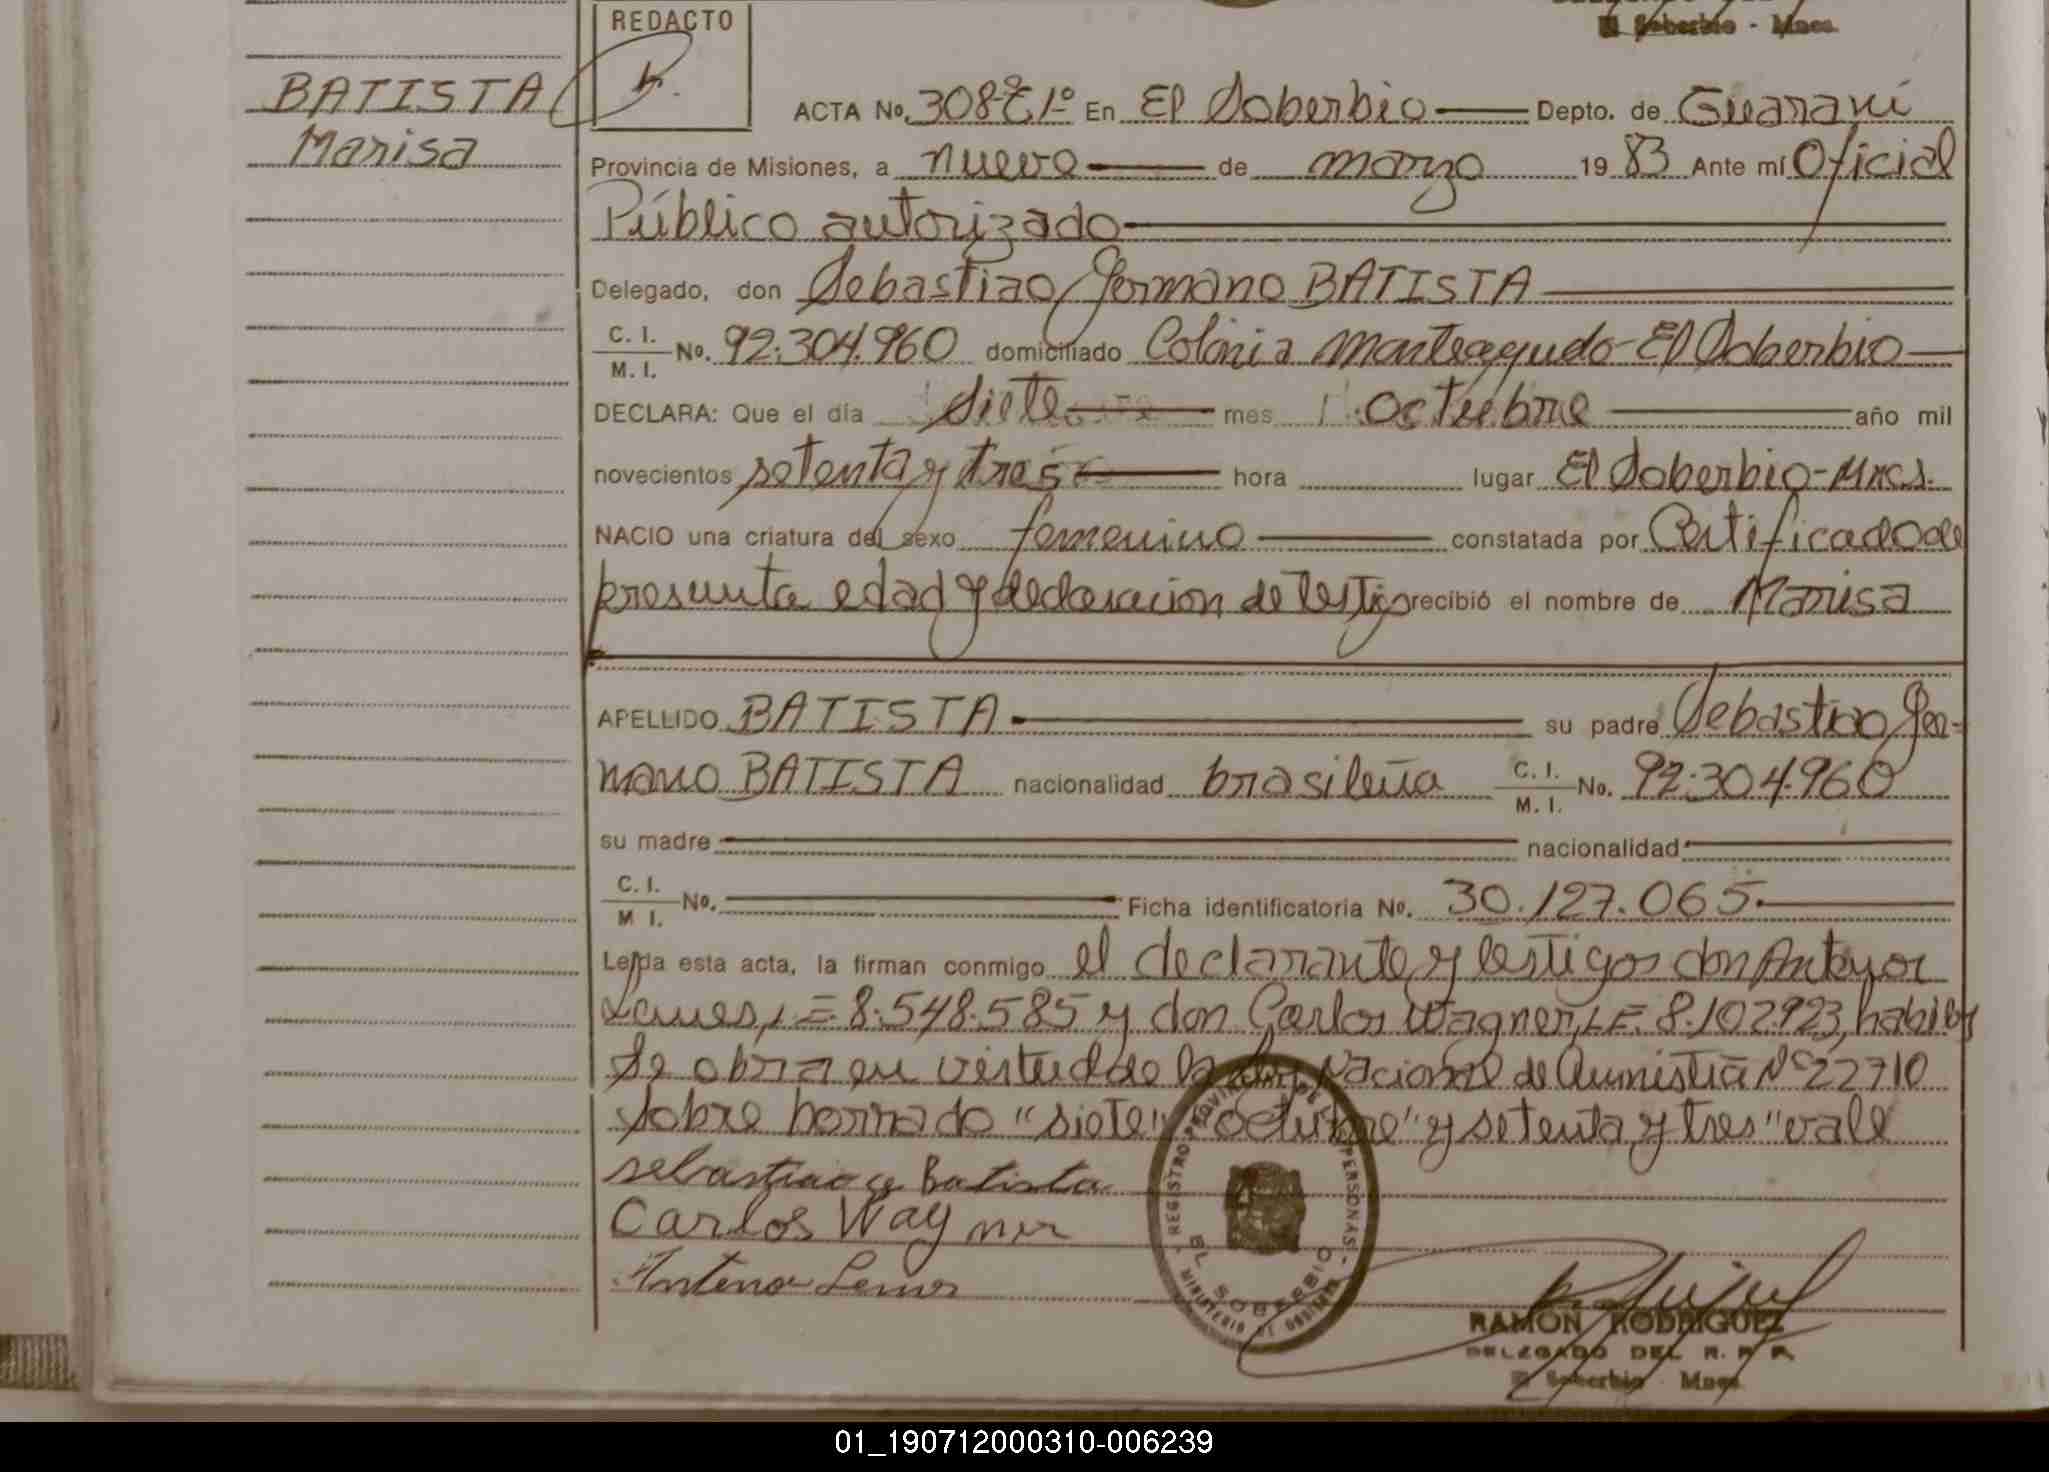 El Soberbio - Mnes.
REDACTO
BATISTA
Marisa
ACTA No. 308-T1º En El Soberbio Depto. de Guaraní
Provincia de Misiones, a nueve de marzo 19 83 Ante mí Oficial
Público autorizado
Delegado, don Sebastiao Germano BATISTA
C. I. / M. I. No. 92.304.960 domiciliado Colonia Monteagudo-El Soberbio
DECLARA: Que el día siete mes octubre año mil
novecientos setenta y tres hora lugar El Soberbio-Mnes.
NACIO una criatura del sexo femenino constatada por Certificado de
presunta edad y declaracion de testigos recibió el nombre de Marisa
APELLIDO BATISTA su padre Sebastiao Ger-
mano BATISTA nacionalidad brasileña C. I. / M. I. No. 92.304.960
su madre nacionalidad
C. I. / M I. No. Ficha identificatoria No. 30.127.065
Leída esta acta, la firman conmigo el declarante y testigos don
LE. 8.548.585 y don Carlos Wagner, LE. 8.102.923, habiles
Se obra en virtud de la Ley Nacional de Amnistia Nº 22710
Sobre borrado "siete" "octubre" y setenta y tres" vale
sebastiao g Batista
Carlos Wagner
Antenor Lemes
REGISTRO PROVINCIAL DE PERSONAS
EL SOBERBIO
MINISTERIO DE GOBIERNO
RAMON RODRIGUEZ
DELEGADO DEL R. P. P.
El Soberbio - Mnes.
01_190712000310-006239